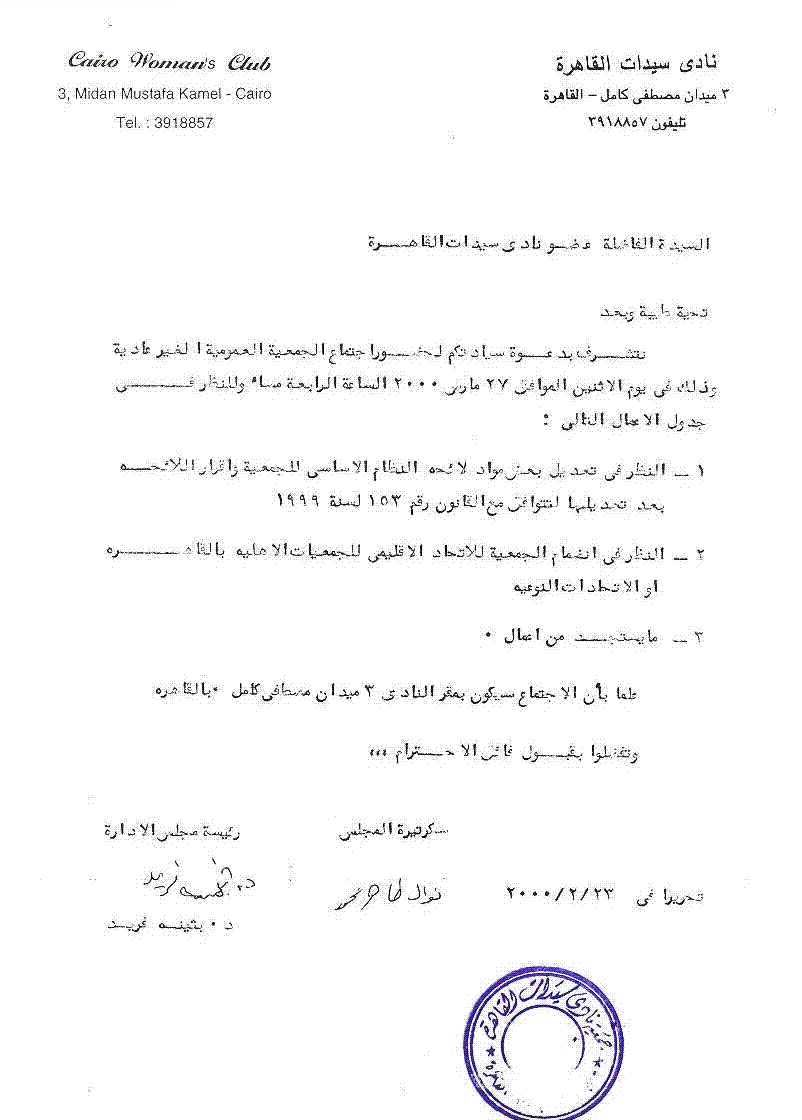 Cairo Woman's Club
3, Midan Mustafa Kamel - Cairo
Tel. : 3918857
نادى سيدات القاهرة
٣ ميدان مصطفى كامل – القاهرة
تليفون ٣٩١٨٨٥٧
السيدة الفاضلة عضو نادى سيدات القاهـــرة
تحية طيبة وبعد
نتشـرف بدعـوة سيادتكم لحضـور اجتماع الجمعية العمومية الغير عادية
وذلك فى يوم الاثنين الموافق ٢٧ مارس ٢٠٠٠ الساعة الرابعة مساء وللنظر فـــى
جدول الاعمال التالى :
١ ــ النظر فى تعديل بعض مواد لائحه النظام الاساسى للجمعية واقرار اللائحـه
بعد تعديلها لتتوافق مع القانون رقم ١٥٣ لسنة ١٩٩٩
٢ ــ النظر فى انضمام الجمعية للاتحاد الاقليمى للجمعيات الاهليه بالقاهــــره
او الاتحادات النوعيه
٣ ــ مايستجـد من اعمال ٠
علما بأن الاجتماع سيكون بمقر النادى ٣ ميدان مصطفى كامل ٠ بالقاهره
وتفضلوا بقبـول فائق الاحـترام ,,,
سكرتيرة المجلس
رئيسة مجلس الادارة
نوال طاهر
تحريرا فى ٢٠٠٠/٢/٢٣
د ٠ بثينـه فريـد
جمعية نادى سيدات القاهرة